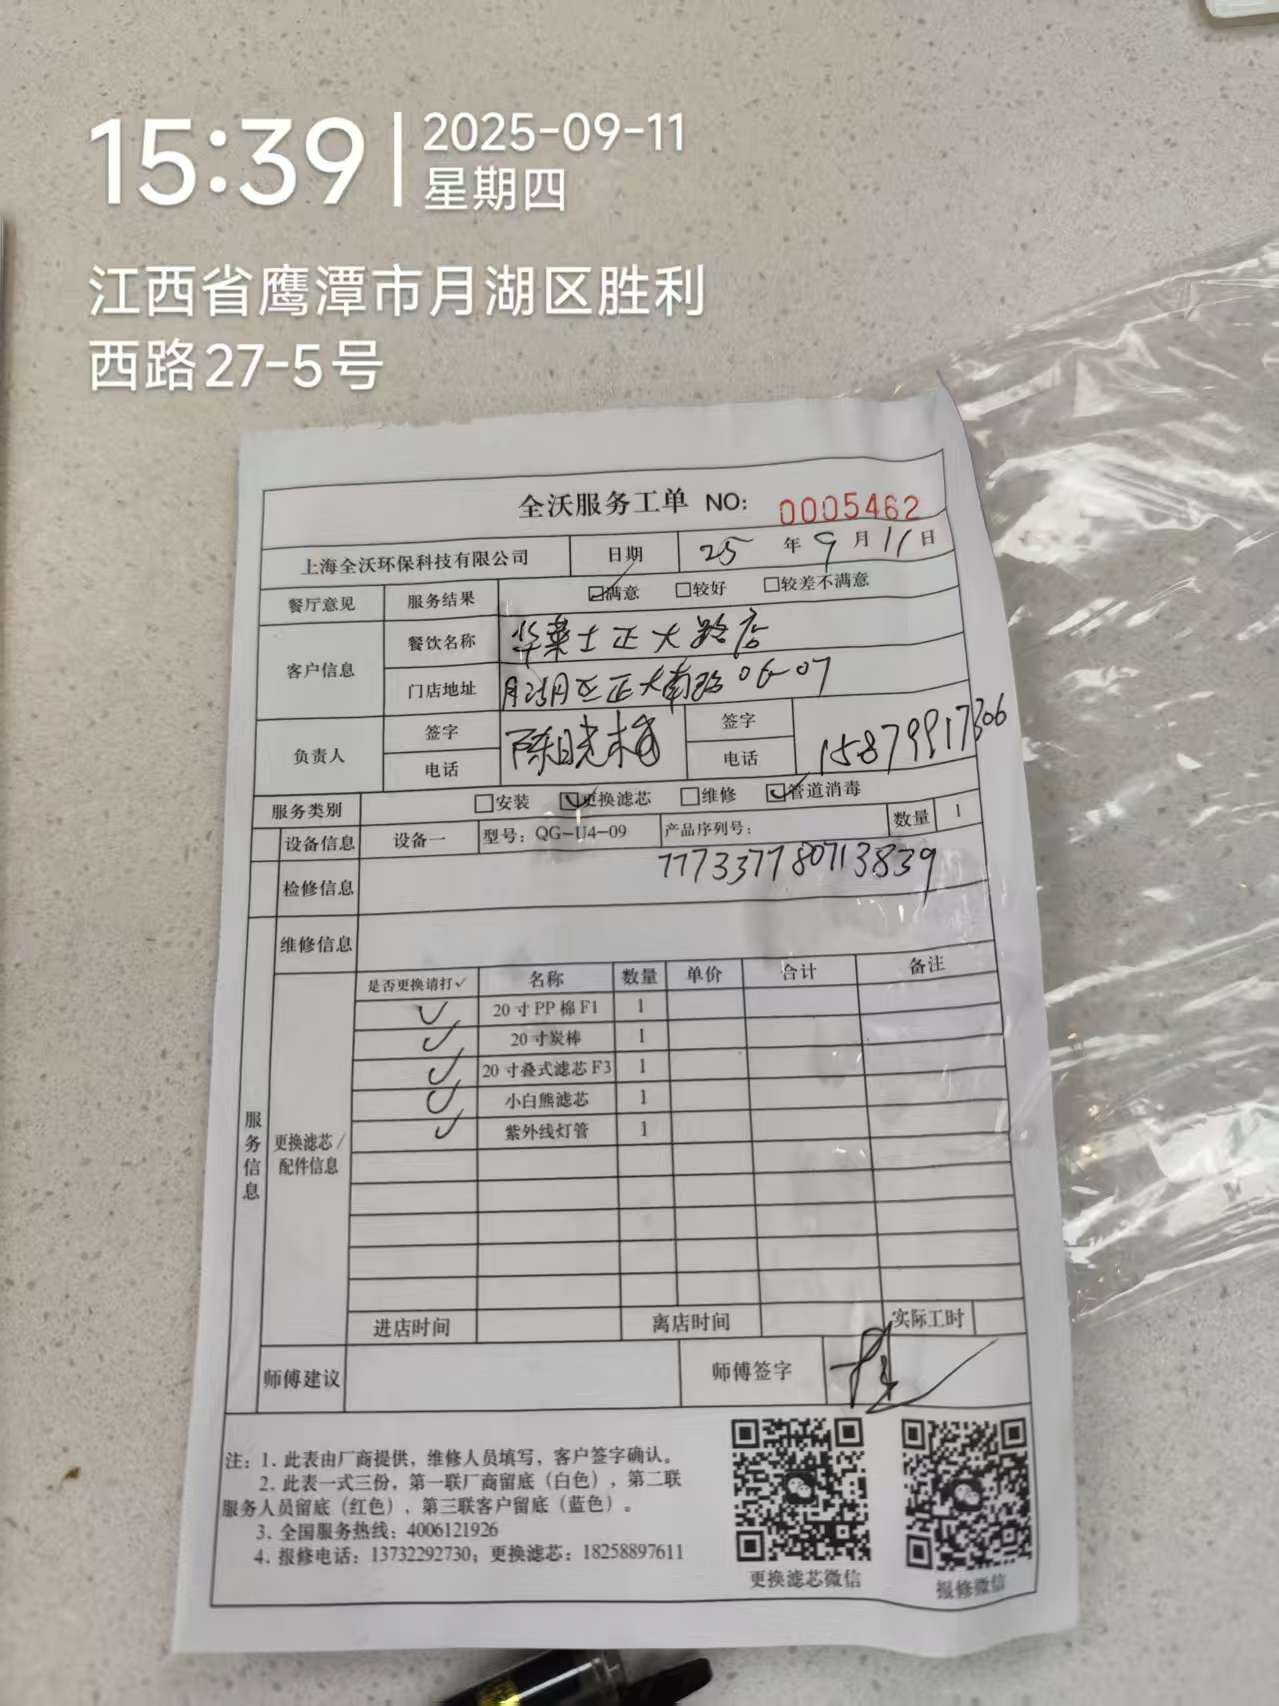 15:39
2025-09-11
星期四
江西省鹰潭市月湖区胜利
西路27-5号
全沃服务工单 NO: 0005462
上海全沃环保科技有限公司 日期 25 年 9 月 11 日
餐厅意见 服务结果 ☑满意 □较好 □较差不满意
客户信息 餐饮名称 华莱士正大路店
门店地址 月湖区正大南路06-07
负责人 签字 陈 签字
电话 电话 15879917306
服务类别 □安装 ☑更换滤芯 □维修 ☑管道消毒
设备信息 设备一 型号: QG-U4-09 产品序列号: 数量 1
777337780713839
检修信息
维修信息
是否更换请打✓ 名称 数量 单价 合计 备注
✓ 20寸PP棉F1 1
✓ 20寸炭棒 1
✓ 20寸叠式滤芯F3 1
✓ 小白熊滤芯 1
✓ 紫外线灯管 1
服务信息
更换滤芯/
配件信息
进店时间 离店时间 实际工时
师傅建议 师傅签字
注: 1. 此表由厂商提供, 维修人员填写, 客户签字确认。
2. 此表一式三份, 第一联厂商留底(白色), 第二联
服务人员留底(红色), 第三联客户留底(蓝色)。
3. 全国服务热线: 4006121926
4. 报修电话: 13732292730; 更换滤芯: 18258897611
更换滤芯微信
报修微信